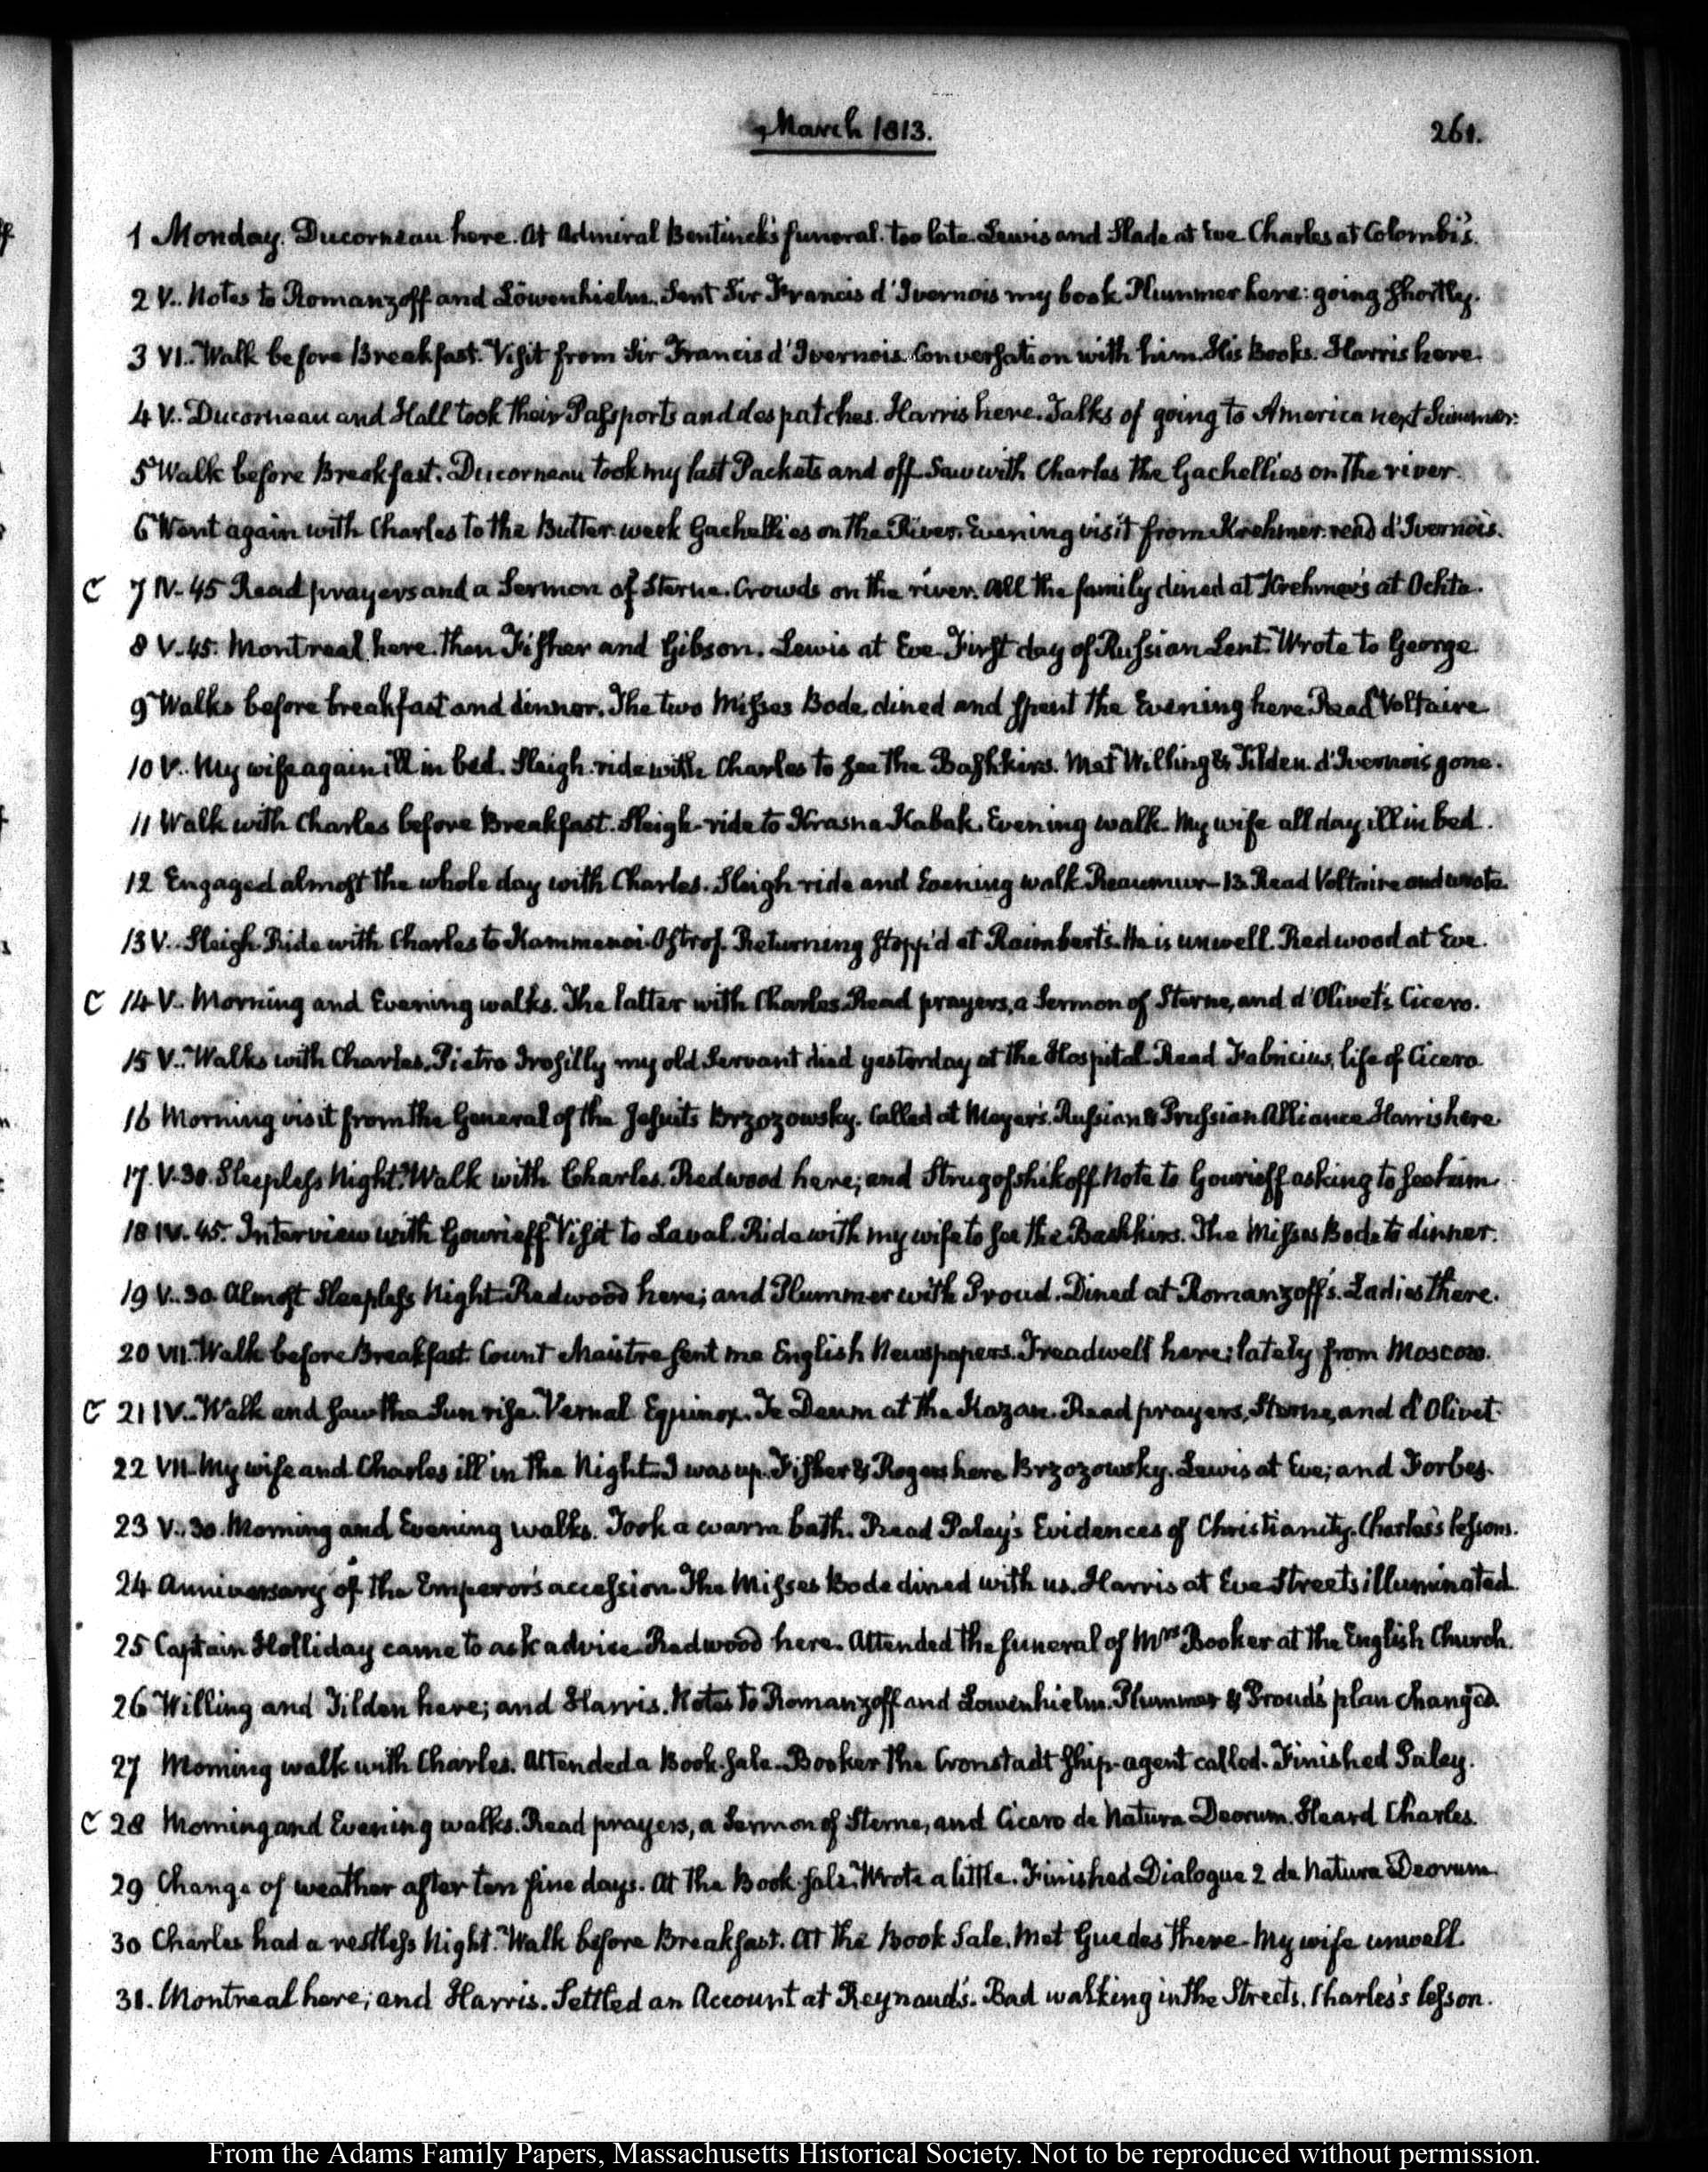 March 1813.
261.
1 Monday. Ducorneau here. At Admiral Bentinck's funeral. too late. Lewis and Slade at Eve. Charles at Colombi's.
2 V.. Notes to Romanzoff and Löwenhielm. Sent Sir Francis d'Ivernois my book. Plummer here: going shortly.
3 VI.. Walk before Breakfast. Visit from Sir Francis d'Ivernois. Conversation with him. His Books. Harris here.
4 V.. Ducorneau and Hall took their Passports and despatches. Harris here. Talks of going to America next Summer.
5 Walk before Breakfast. Ducorneau took my last Packets and off. Saw with Charles the Gachellies on the river.
6 Went again with Charles to the Butter-week Gachellies on the River. Evening visit from Krehmer. read d'Ivernois.
C 7 IV-45 Read prayers and a Sermon of Sterne. Crowds on the river. All the family dined at Krehmer's at Ochta.
8 V-45. Montreal here. then Fisher and Gibson. Lewis at Eve. First day of Russian Lent. Wrote to George
9 Walks before breakfast and dinner. The two Misses Bode, dined and spent the Evening here. Read Voltaire
10 V.. My wife again ill in bed. Sleigh-ride with Charles to see the Bashkirs. Met Willing & Tilden. d'Ivernois gone.
11 Walk with Charles before Breakfast. Sleigh-ride to Krasna Kabak. Evening walk. My wife all day ill in bed.
12 Engaged almost the whole day with Charles. Sleigh ride and Evening walk. Reaumur-13. Read Voltaire and wrote.
13 V.. Sleigh Ride with Charles to Kammenoi-Ostrof. Returning stopp'd at Raimbert's. He is unwell. Redwood at Eve.
C 14 V.. Morning and Evening walks. The latter with Charles. Read prayers, a Sermon of Sterne, and d'Olivet's Cicero.
15 V.. Walks with Charles. Pietro my old Servant died yesterday at the Hospital. Read Fabricius, life of Cicero
16 Morning visit from the General of the Jesuits Brzozowsky. Called at Meyer's. Russian & Prussian Alliance. Harris here
17. V-30. Sleepless Night. Walk with Charles. Redwood here; and Strugofshikoff. Note to Gourieff asking to see him.
18 IV.45. Interview with Gourieff. Visit to Laval. Ride with my wife to see the Bashkirs. The Misses Bode to dinner.
19 V..30. Almost Sleepless Night. Redwood here; and Plummer with Proud. Dined at Romanzoff's. Ladies there.
20 VII. Walk before Breakfast. Count Maistre sent me English Newspapers. Treadwell here; lately from Moscow.
C 21 IV.. Walk and saw the Sun rise. Vernal Equinox. Te Deum at the Kazan. Read prayers, Sterne, and d'Olivet
22 VII. My wife and Charles ill in the Night. I was up. Fisher & Rogers here. Brzozowsky. Lewis at Eve; and Forbes.
23 V..30. Morning and Evening walks. Took a warm bath. Read Paley's Evidences of Christianity. Charles's lessons.
24 Anniversary of the Emperor's accession. The Misses Bode dined with us. Harris at Eve. Streets illuminated.
25 Captain Holliday came to ask advice. Redwood here. Attended the funeral of Mrs Booker at the English Church.
26 Willing and Tilden here; and Harris. Notes to Romanzoff and Lowenhielm. Plummer & Proud's plan changed.
27 Morning walk with Charles. Attended a Book-sale. Booker the Cronstadt ship-agent called. Finished Paley.
C 28 Morning and Evening walks. Read prayers, a Sermon of Sterne, and Cicero de Natura Deorum. Heard Charles.
29 Change of weather after ten fine days. At the Book-sale. Wrote a little. Finished Dialogue 2 de Natura Deorum.
30 Charles had a restless Night. Walk before Breakfast. At the Book Sale. Met Guedes there. My wife unwell.
31. Montreal here; and Harris. Settled an Account at Reynaud's. Bad walking in the Streets. Charles's lesson.
From the Adams Family Papers, Massachusetts Historical Society. Not to be reproduced without permission.